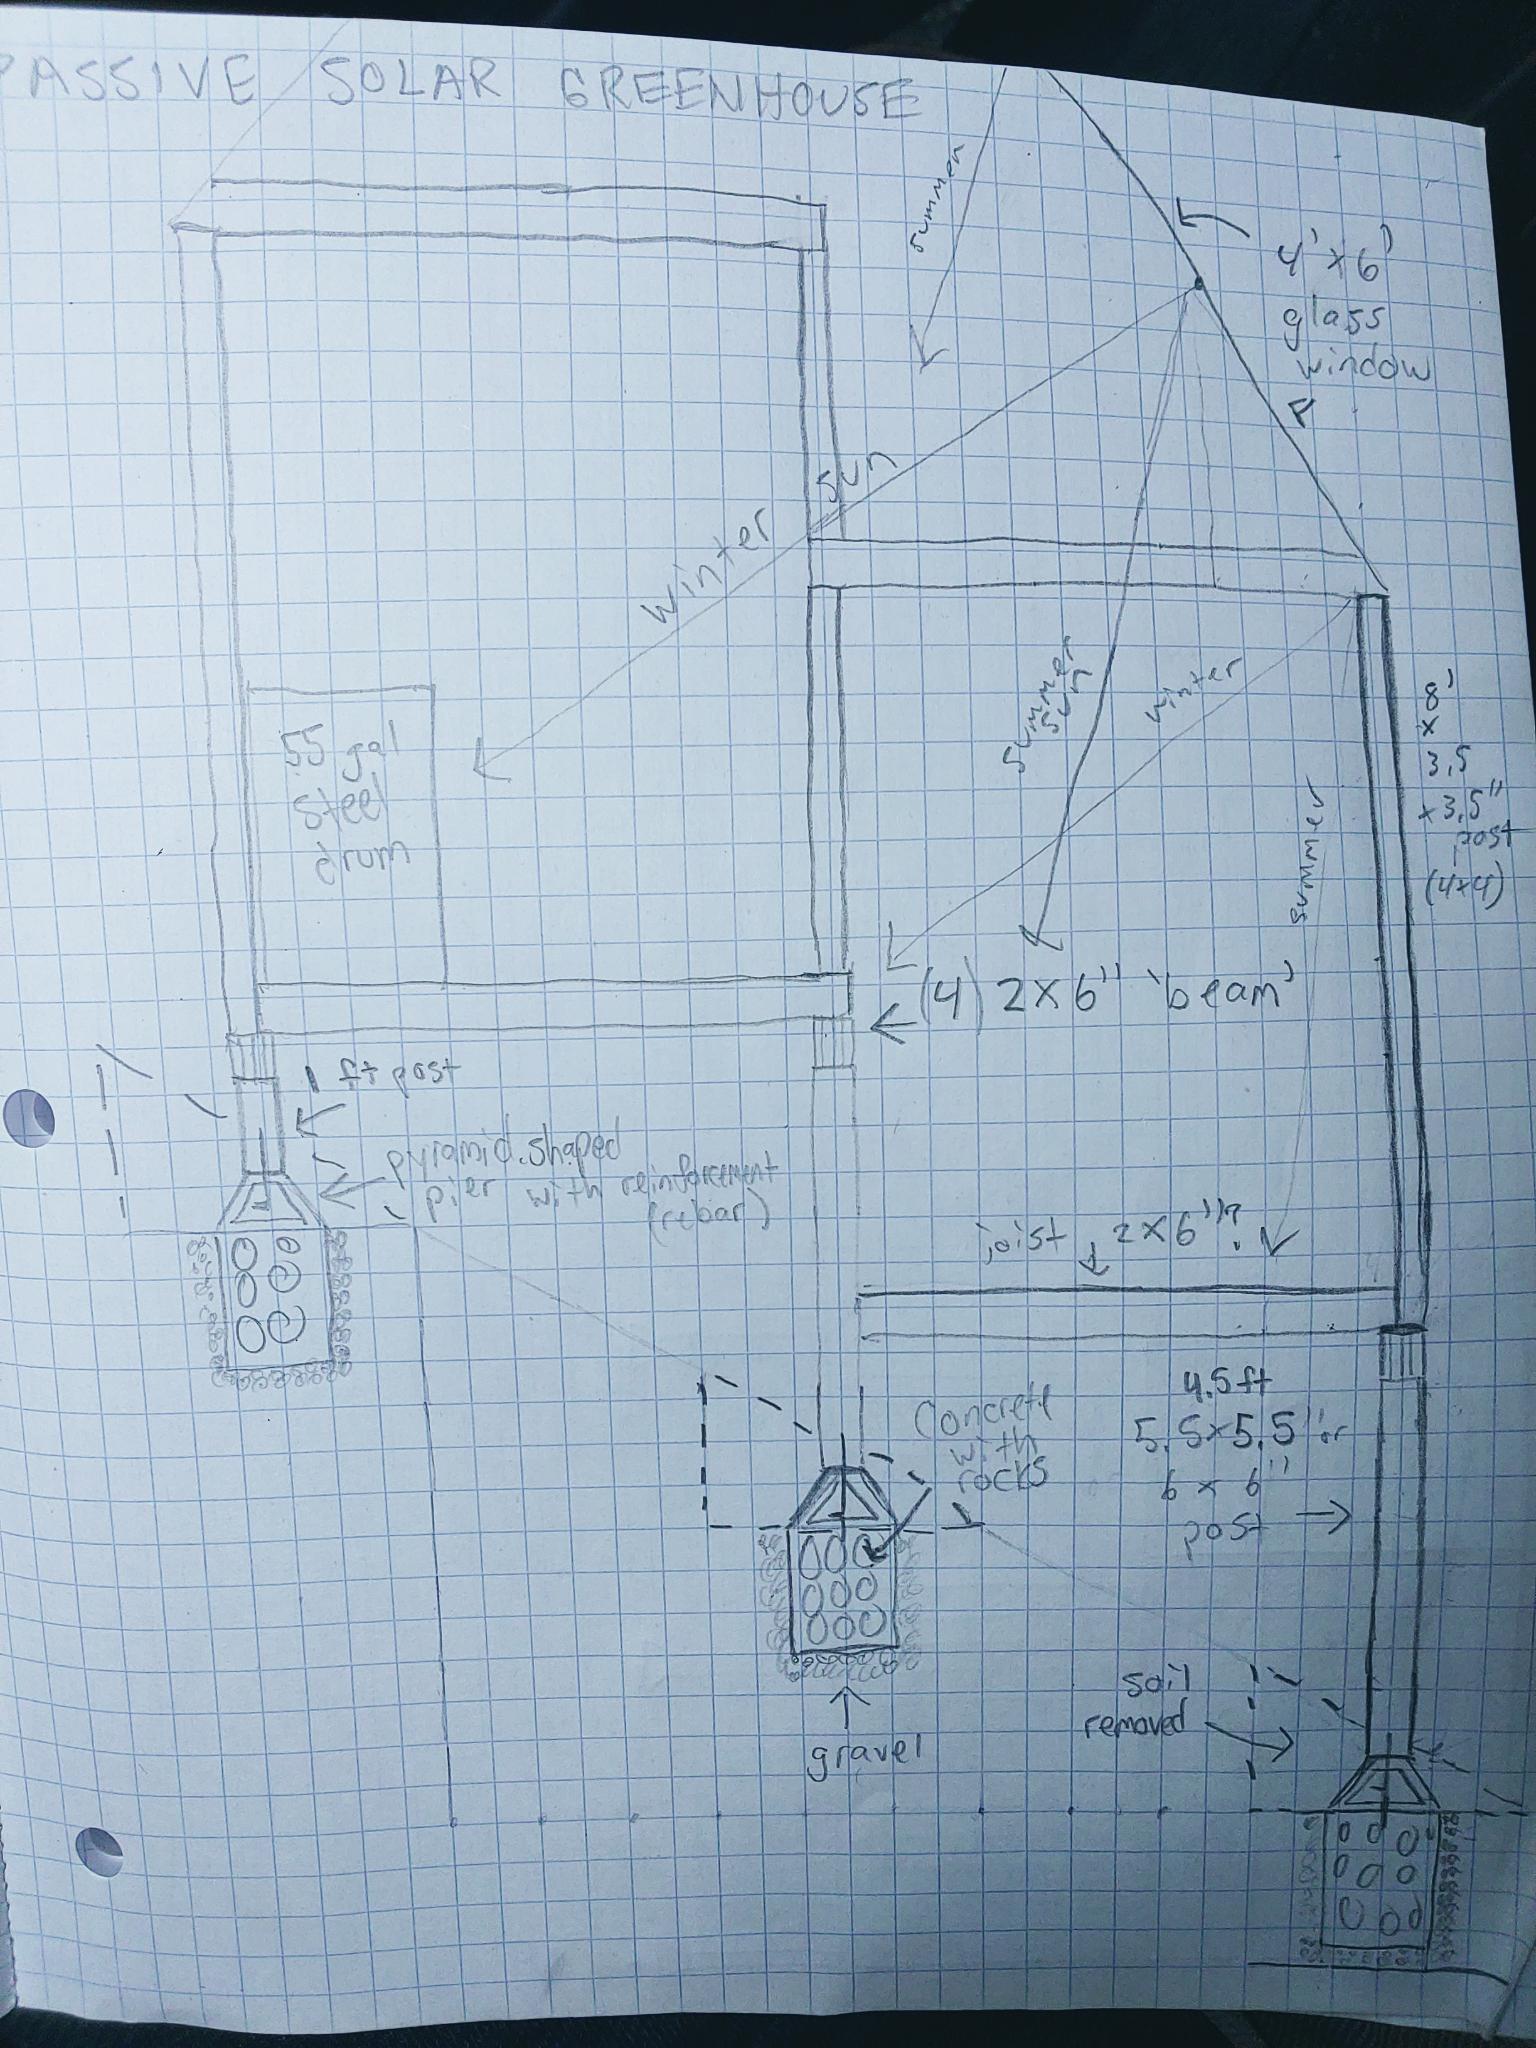 PASSIVE SOLAR GREENHOUSE
summer
4' x 6'
glass
window
winter sun
summer
sun
winter
summer
8'
x
3.5
x 3.5"
post
(4x4)
55 gal
steel
drum
(4) 2x6" 'beam'
1 ft post
pyramid shaped
pier with reinforcement
(rebar)
joist 2x6"?
concrete
with
rocks
4.5 ft
5.5x5.5" or
6 x 6"
post
soil
removed
gravel